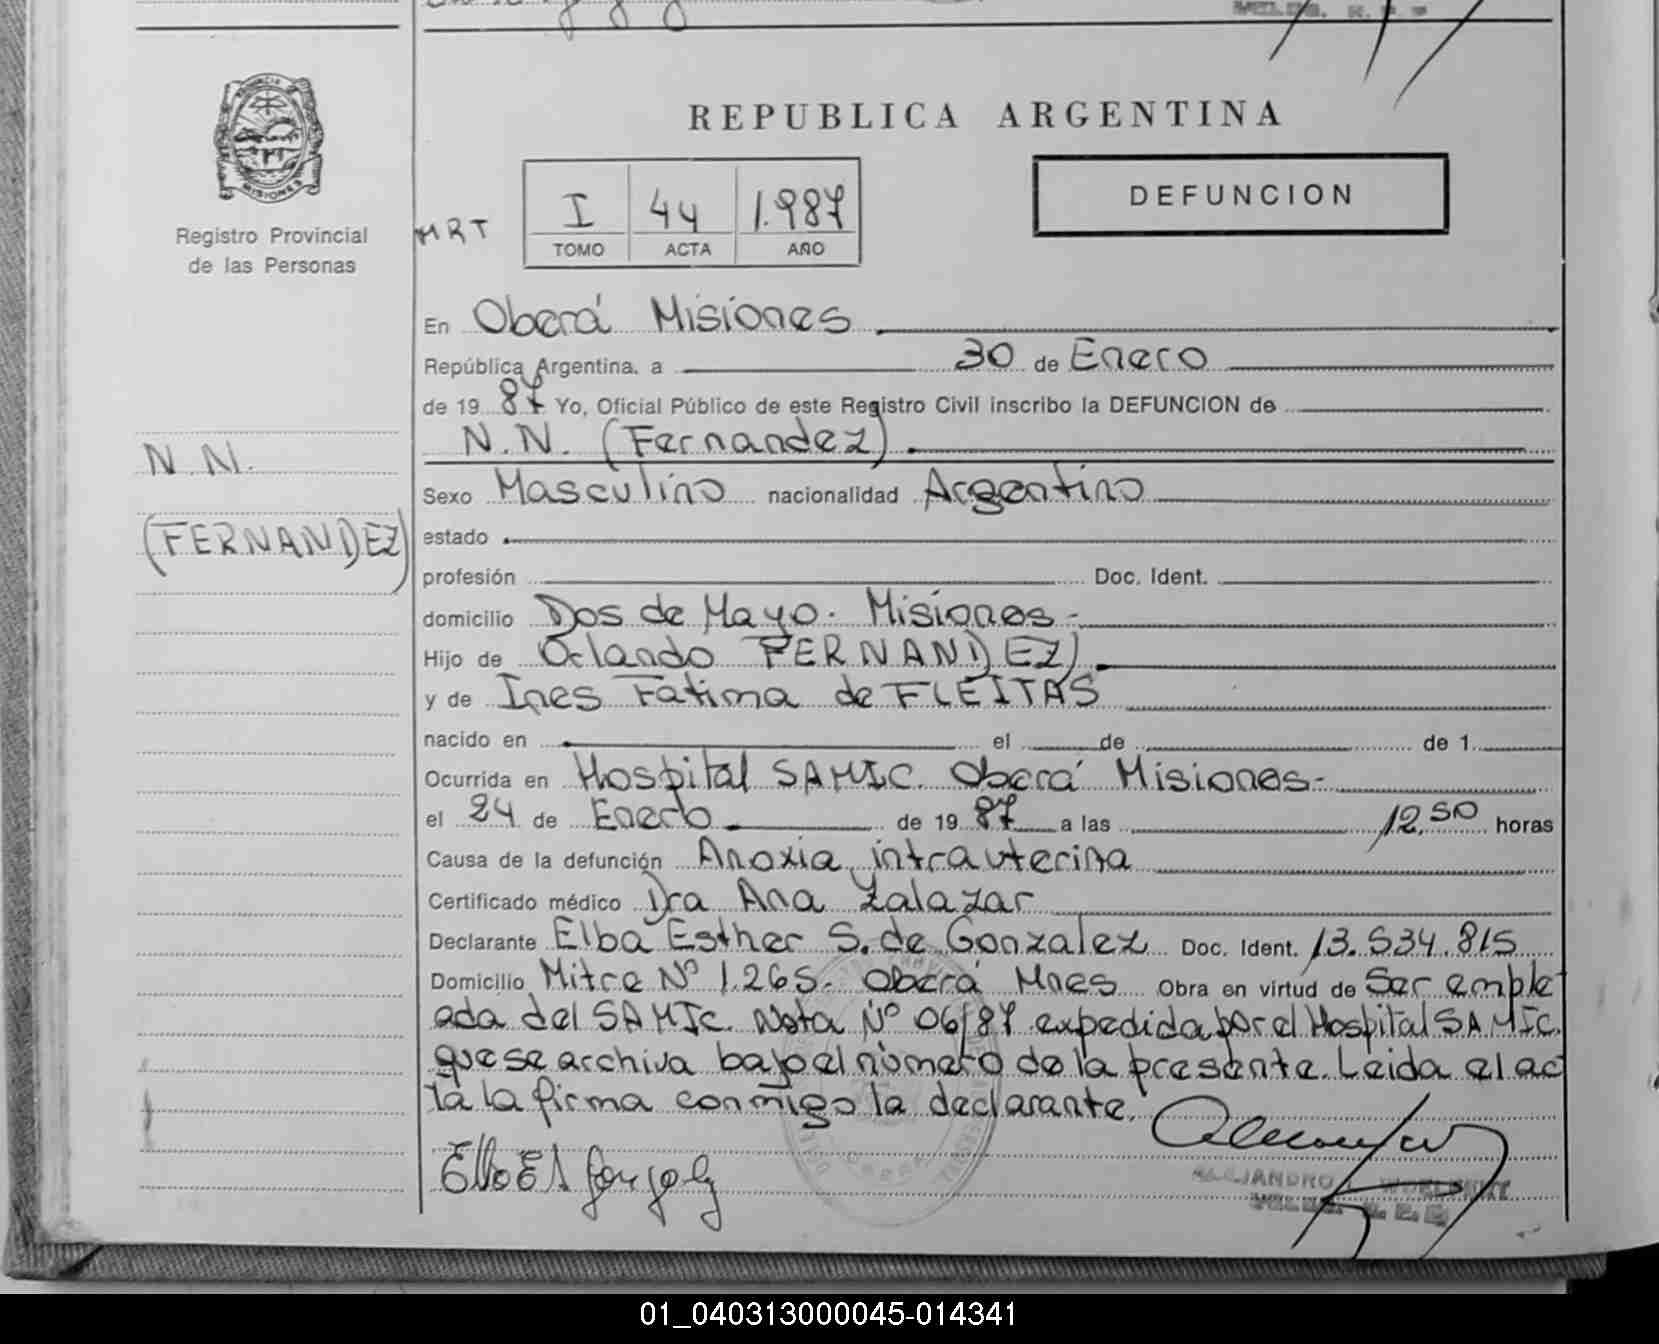 REPUBLICA ARGENTINA
PROVINCIA DE
MISIONES
Registro Provincial
de las Personas
MRT
I 44 1.987
TOMO ACTA AÑO
DEFUNCION
N.N.
(FERNANDEZ)
En Oberá Misiones
República Argentina, a 30 de Enero
de 19 87 Yo, Oficial Público de este Registro Civil inscribo la DEFUNCION de
N.N. (Fernandez)
Sexo Masculino nacionalidad Argentino
estado
profesión Doc. Ident.
domicilio Dos de Mayo. Misiones-
Hijo de Orlando FERNANDEZ)
y de Ines Fatima de FLEITAS
nacido en el de de 1
Ocurrida en Hospital SAMIC. Oberá Misiones-
el 24 de Enero de 19 87 a las 12,50 horas
Causa de la defunción Anoxia intrauterina
Certificado médico Dra Ana Zalazar
Declarante Elba Esther S. de Gonzalez Doc. Ident. 13.534.815
Domicilio Mitre Nº 1.265. Oberá Mnes Obra en virtud de Ser emple
ada del SAMIC. Nota Nº 06/87 expedida por el Hospital SAMIC.
que se archiva bajo el número de la presente. Leida el ac
ta la firma conmigo la declarante.
ALEJANDRO
01_040313000045-014341